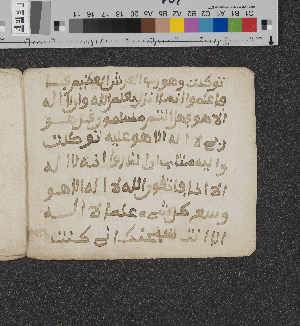 توكلت وهو رب العرش العظيم
فاعلموا انما انزل بعلم الله وان لا اله
الا هو فهل انتم مسلمون قل هو
ربي لا اله الا هو عليه توكلت
واليه متاب
الا انا فاتقون الله لا اله الا هو
وسع كل شيء علما لا اله
الا انت سبحنك اني كنت